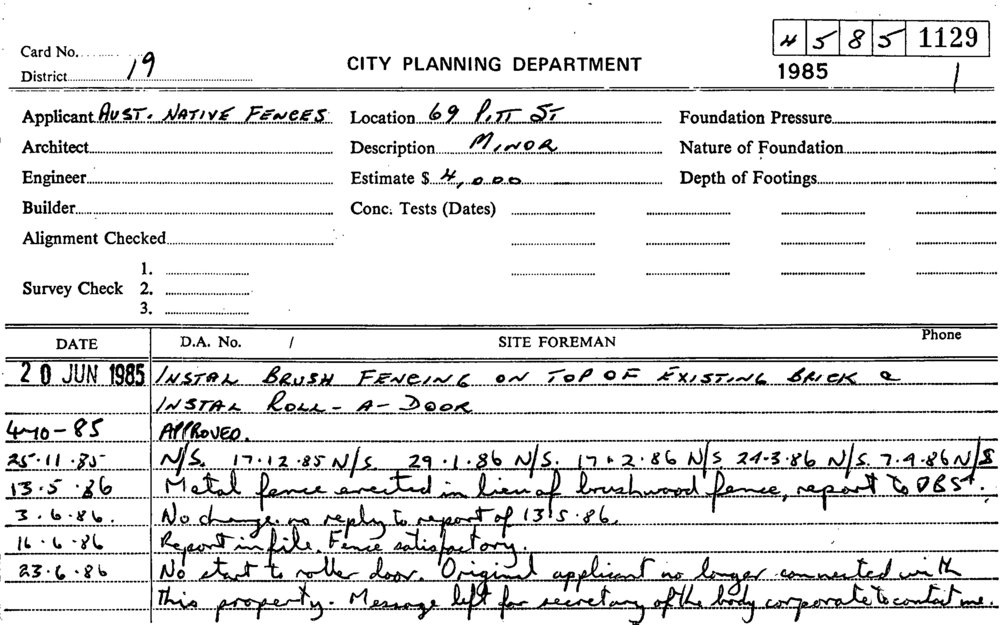 Card No.
District 19
CITY PLANNING DEPARTMENT
4 5 8 5 1129
1985 1
Applicant AUST. NATIVE FENCES Location 69 PITT ST Foundation Pressure
Architect Description MINOR Nature of Foundation
Engineer Estimate $ 4,000 Depth of Footings
Builder Conc. Tests (Dates)
Alignment Checked
1.
Survey Check 2.
3.
DATE D.A. No. / SITE FOREMAN Phone
20 JUN 1985 INSTAL BRUSH FENCING ON TOP OF EXISTING BRICK &
INSTAL ROLL-A-DOOR
4-10-85 APPROVED.
25.11.85 N/S. 17.12.85 N/S 29.1.86 N/S. 17.2.86 N/S 24.3.86 N/S. 7.4.86 N/S
13.5.86 Metal fence erected in lieu of brushwood fence, report to DBS.
3.6.86. No change. no reply to report of 13.5.86.
16.6.86 Report in file. Fence satisfactory.
23.6.86 No start to roller door. Original applicant no longer connected with
this property. Message left for secretary of the body corporate to contact me.